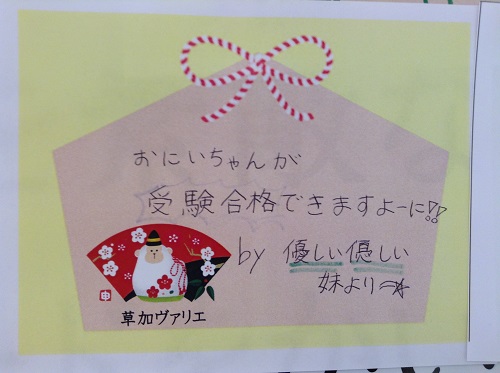 おにいちゃんが
受験合格できますよーに!!
by 優しい優しい
妹より
申
草加ヴァリエ